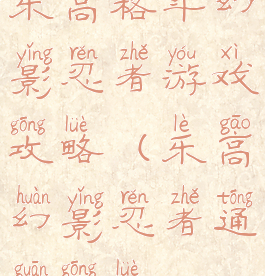 乐高格斗幻
yǐng rěn zhě yóu xì
影忍者游戏
gōng lüè lè gāo
攻略(乐高
huàn yǐng rěn zhě tōng
幻影忍者通
guān gōng lüè